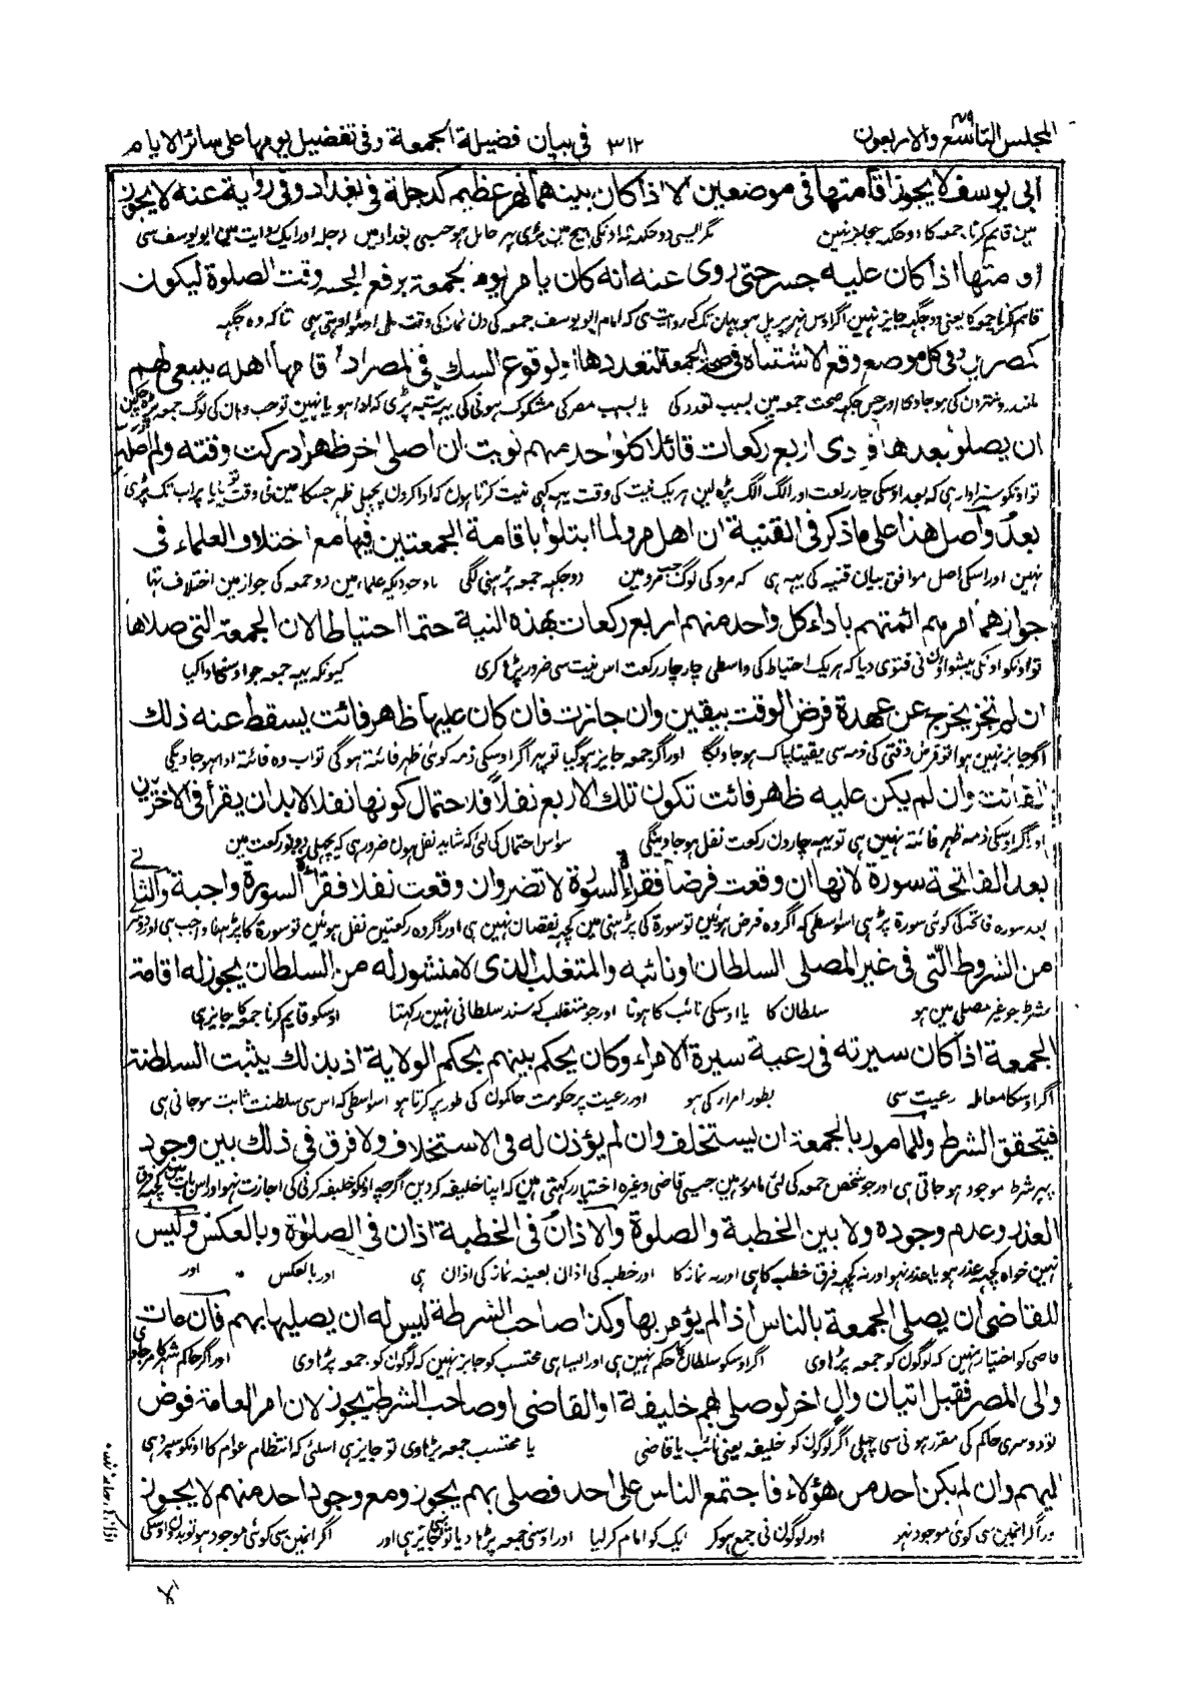 المجلس التاسع والاربعون ۳۱۲ فی بیان فضیلة الجمعة وفی تفضیل یومها علی سائر الایام
ابی یوسف لا یجوز اقامتها فی موضعین الا اذا کان بینهما نهر عظیم کدجلة فی بغداد وفی روایة عنه لا یجوز
مین قایم کرنا جمعہ کا دو جگہ جایز نہین مگر ایسی دو جگہ اونکی بیچ مین بڑی نہر حائل ہو جیسی بغداد مین دجلہ اور ایک روایت مین ابو یوسف سی
اذا کان علیه جسر حتی روی عنه انه کان یامر یوم الجمعة برفع الجسر وقت الصلوة لیکون
قائم کرنا جمعہ کا یعنی دو جگہ جایز نہین اگر اوس نہر پر پل ہو یہان تک کہ روایت ہی کہ امام ابو یوسف جمعہ کی دن نماز کی وقت پل اوٹھوا دیتی تهی تاکہ دہ جگہہ
کمصرین وفی کل موضع وقع الاشتباه فی صحة الجمعة لتعددها او لوقوع الشک فی المصر اذا قامها اهله ینبغی لهم
مانند دو شہرون کی ہو جاوی اور جس جگہہ صحت جمعہ مین بسبب تعدد کی یا بسبب مصر کی مشکوک ہونی کی یہہ شبہ پڑی کہ ادا ہو یا نہین تو جب وہان کی لوگ جمعہ پڑہ چکین
ان یصلوا بعدها فرادی اربع رکعات قائلا کل واحد منهم نویت ان اصلی اخر ظهر ادرکت وقته ولم اصله
تو اونکو سزاوار ہی کہ بعد اوسکی چار رکعت اور الگ الگ پڑہ لین ہر یک نیت کی وقت یہہ کہی نیت کرتا ہون کہ ادا کرون پچہلی ظہر جسکا مین نی وقت پایا پر اب تک پڑہی
بعد واصل هذا علی ما ذکر فی القنیة ان اهل مرو لما ابتلوا باقامة الجمعتین فیها مع اختلاف العلماء فی
نہین اور اسکی اصل موافق بیان قنیہ کی یہہ ہی کہ مرو کی لوگ جب مرو مین دو جگہہ جمعہ پڑہنی لگی باوجودیکہ علماء مین دو جمعہ کی جواز مین اختلاف تہا
جوازهما امرهم ائمتهم باداء کل واحد منهم اربع رکعات بهذه النیة حتما احتیاطا لان الجمعة التی صلاها
تو اونکو اونکی پیشواؤن نی فتوی دیا کہ ہر یک احتیاط کی واسطی چار چار رکعت اس نیت سی ضرور پڑہا کری کیونکہ یہہ جمعہ جو اوسنی ادا کیا
ان لم تجز یخرج عن عهدة فرض الوقت بیقین وان جازت فان کان علیها ظهر فائت یسقط عنه ذلک
اگر جایز نہین ہوا تو فرض وقتی کی ذمہ سی یقینا پاک ہو جاویگا اور اگر جمعہ جایز ہو گیا تو پہر اگر اوسکی ذمہ کوئی ظہر فائتہ ہو گی تو اب وہ فائتہ ادا ہو جاویگی
الفائت وان لم یکن علیه ظهر فائت تکون تلک الاربع نفلا فلاحتمال کونها نفلا لابد ان یقرا فی الاخریین
اور اگر اوسکی ذمہ ظہر فائتہ نہین ہی تو یہہ چارون رکعت نفل ہو جاوینگی سو اس احتمال کی لئی کہ شاید نفل ہون ضرور ہی کہ پچہلی دو رکعت مین
بعد الفاتحة سورة لانها ان وقعت فرضا فقراءة السورة لا تضر وان وقعت نفلا فقراءة السورة واجبة والثانی
بعد سورہ فاتحہ کی کوئی سورۃ پڑہی اسواسطی کہ اگر وہ فرض ہوئین تو سورۃ کی پڑہنی مین کچہہ نقصان نہین ہی اور اگر وہ رکعتین نفل ہوئین تو سورۃ کا پڑہنا واجب ہی اور دوسری
من الشروط التی فی غیر المصلی السلطان او نائبه والمتغلب الذی لا منشور له من السلطان یجوز له اقامة
شرط جو غیر مصلی مین ہو سلطان کا یا اوسکی نائب کا ہونا اور جو متغلب کہ سند سلطانی نہین رکہتا اوسکو قایم کرنا جمعہ کا جایز ہی
الجمعة اذا کان سیرته فی رعیة سیرة الامراء وکان یحکم بینهم بحکم الولایة اذ بذلک یثبت السلطنة
اگر اوسکا معاملہ رعیت سی بطور امراء کی ہو اور رعیت پر حکومت حاکمون کی طور پر کرتا ہو اسواسطی کہ اس سی سلطنت ثابت ہو جاتی ہی
فیتحقق الشرط وللمامور بالجمعة ان یستخلف وان لم یؤذن له فی الاستخلاف ولا فرق فی ذلک بین وجود
پہر شرط موجود ہو جاتی ہی اور جو شخص جمعہ کی لئی مامور ہین جیسی قاضی وغیرہ اختیار رکہتی ہین کہ اپنا خلیفہ کر دین اگرچہ اونکو خلیفہ کرنی کی اجازت نہو اور اس بات مین کچہہ فرق
العذر وعدم وجوده ولا بین الخطبة والصلوة والاذان فی الخطبة اذان فی الصلوة وبالعکس ولیس
نہین خواہ کچہہ عذر ہو یا عذر نہو اور نہ کچہہ فرق خطبہ کا ہی اور نہ نماز کا اور خطبہ کی اذان بعینہ نماز کی اذان ہی اور بالعکس اور
للقاضی ان یصلی الجمعة بالناس اذا لم یؤمر بها وکذا صاحب الشرطة لیس له ان یصلیها بهم فان مات
قاضی کو اختیار نہین کہ لوگون کو جمعہ پڑہاوی اگر اوسکو سلطان کا حکم نہین ہی اور ایسا ہی محتسب کو جایز نہین کہ لوگون کو جمعہ پڑہاوی اور اگر حاکم شہر کا مر جاوی
والی المصر فقبل اتیان وال اخر لو صلی بهم خلیفة او القاضی او صاحب الشرطة یجوز لان امر العامة فوض
تو دوسری حاکم کی مقرر ہونی سی پہلی اگر لوگون کو خلیفہ یعنی نائب یا قاضی یا محتسب جمعہ پڑہاوی تو جایز ہی اسلئی کہ انتظام عوام کا اونکو سپرد ہی
الیهم وان لم یکن احد من هؤلاء فاجتمع الناس علی احد فصلی بهم یجوز ومع وجود احد منهم لا یجوز
اور اگر انمین سی کوئی موجود نہو اور لوگون نی جمع ہو کر ایک کو امام کر لیا اور اوسنی جمعہ پڑہا دیا تو بہی جایز ہی اور اگر انمین سی کوئی موجود ہو تو بدون اوسکی